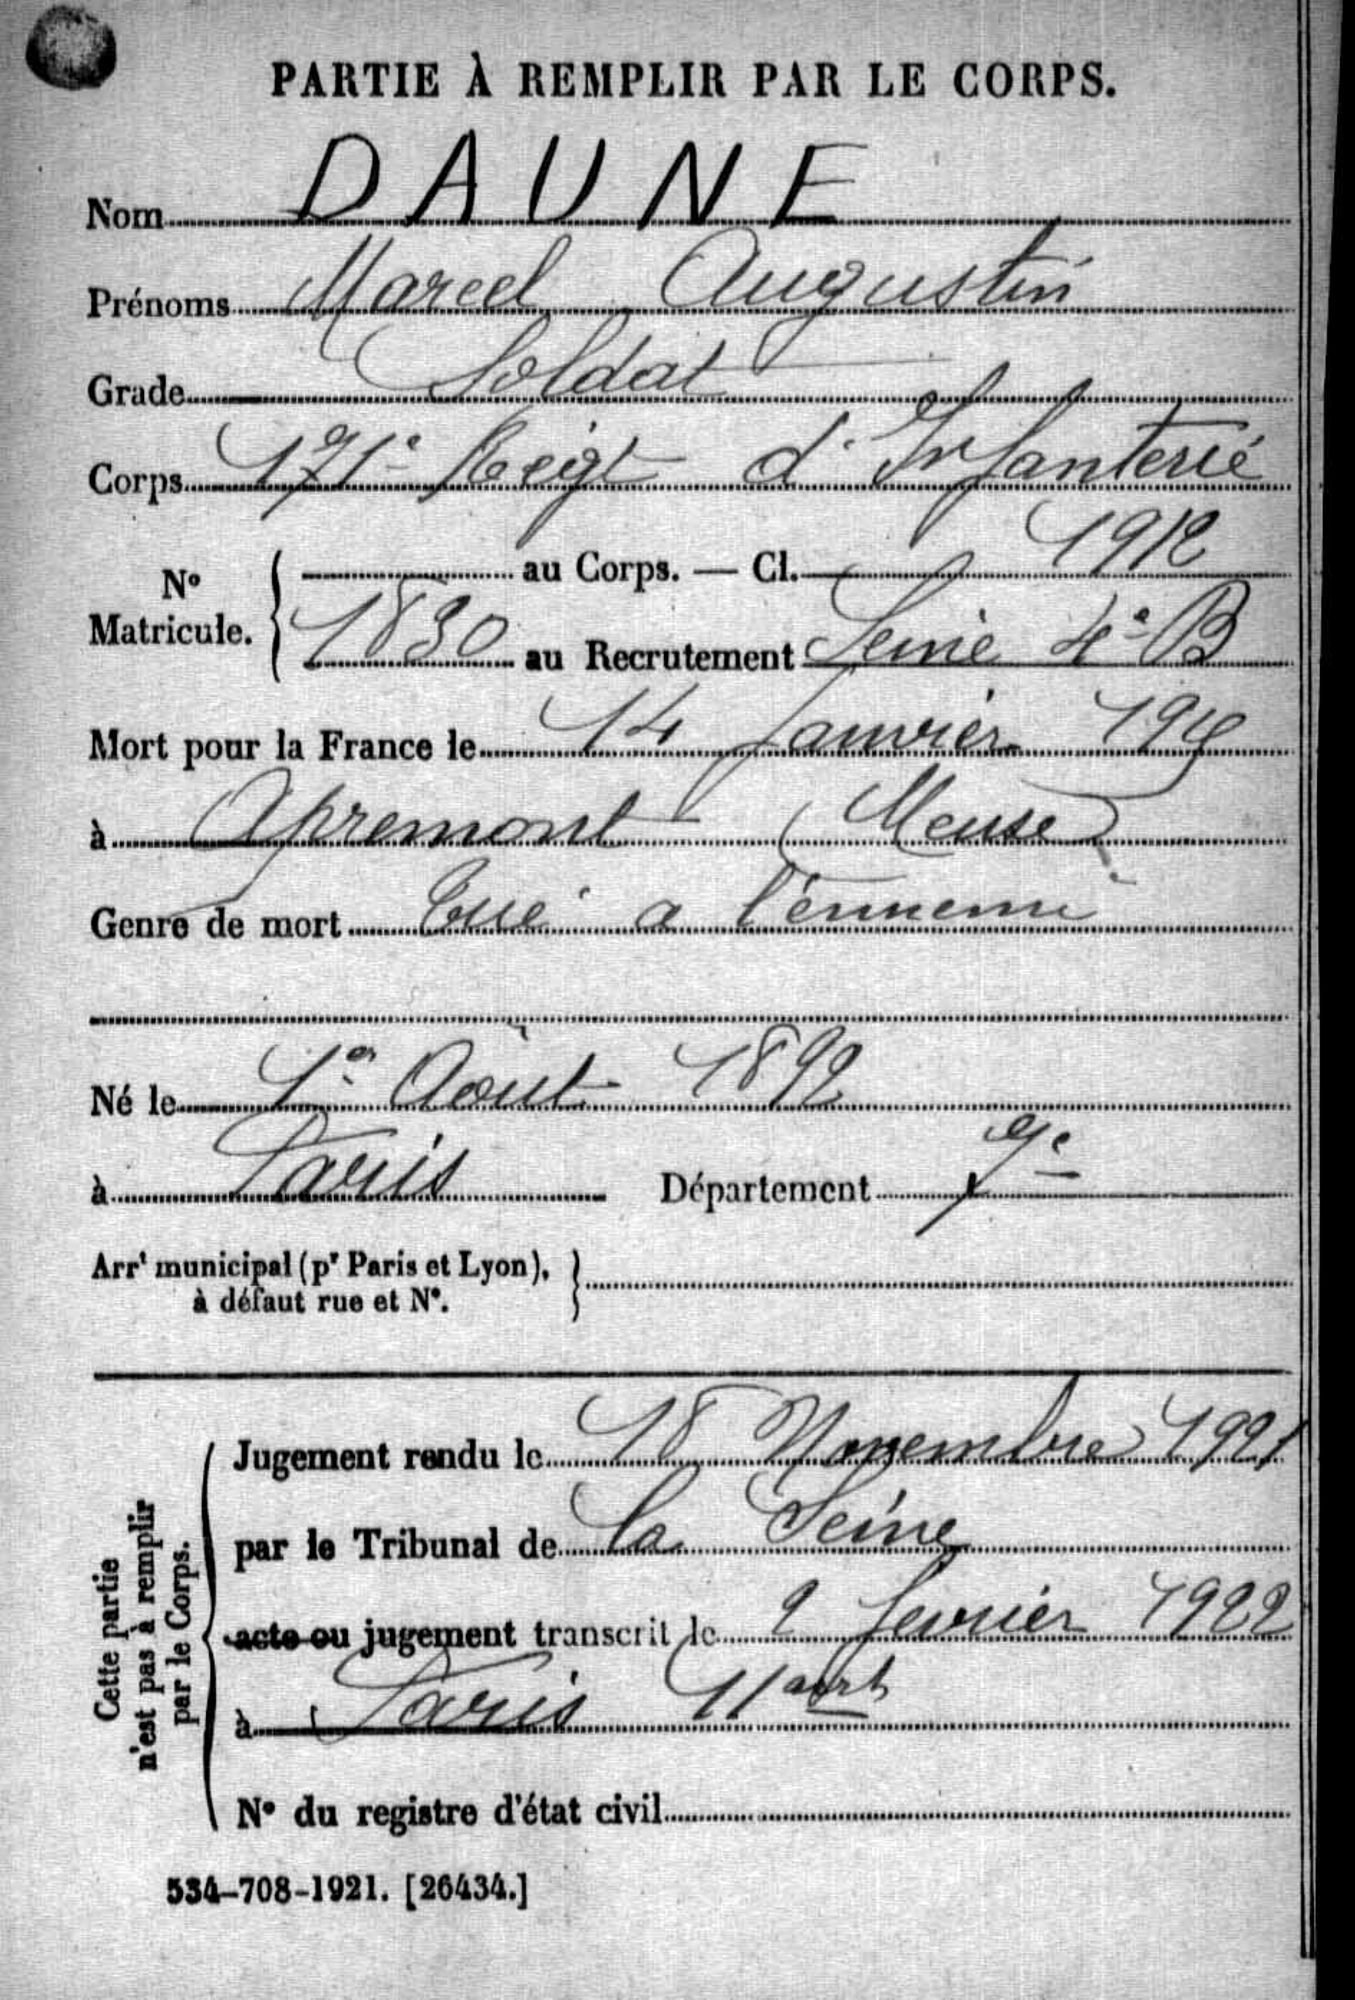 PARTIE À REMPLIR PAR LE CORPS.
Nom DAUNE
Prénoms Marcel Augustin
Grade Soldat
Corps 171e Régt d'Infanterie
No Matricule. { au Corps. — Cl. 1912
1830 au Recrutement Seine 4e B
Mort pour la France le 14 Janvier
à Apremont (Meuse)
Genre de mort Tué a l'ennemi
Né le 1er Août 1892
à Paris Département
Arrt municipal (pr Paris et Lyon), à défaut rue et No. }
Cette partie n'est pas à remplir par le Corps.
Jugement rendu le 18 Novembre 1921
par le Tribunal de la Seine
acte ou jugement transcrit le 2 fevrier 1922
à Paris 11 arrt
No du registre d'état civil
534-708-1921. [26434.]